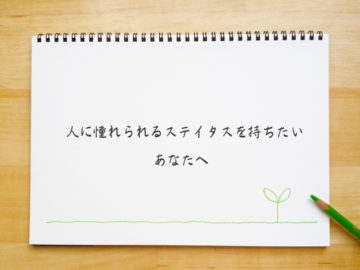 人に憧れられるステイタスを持ちたい
あなたへ